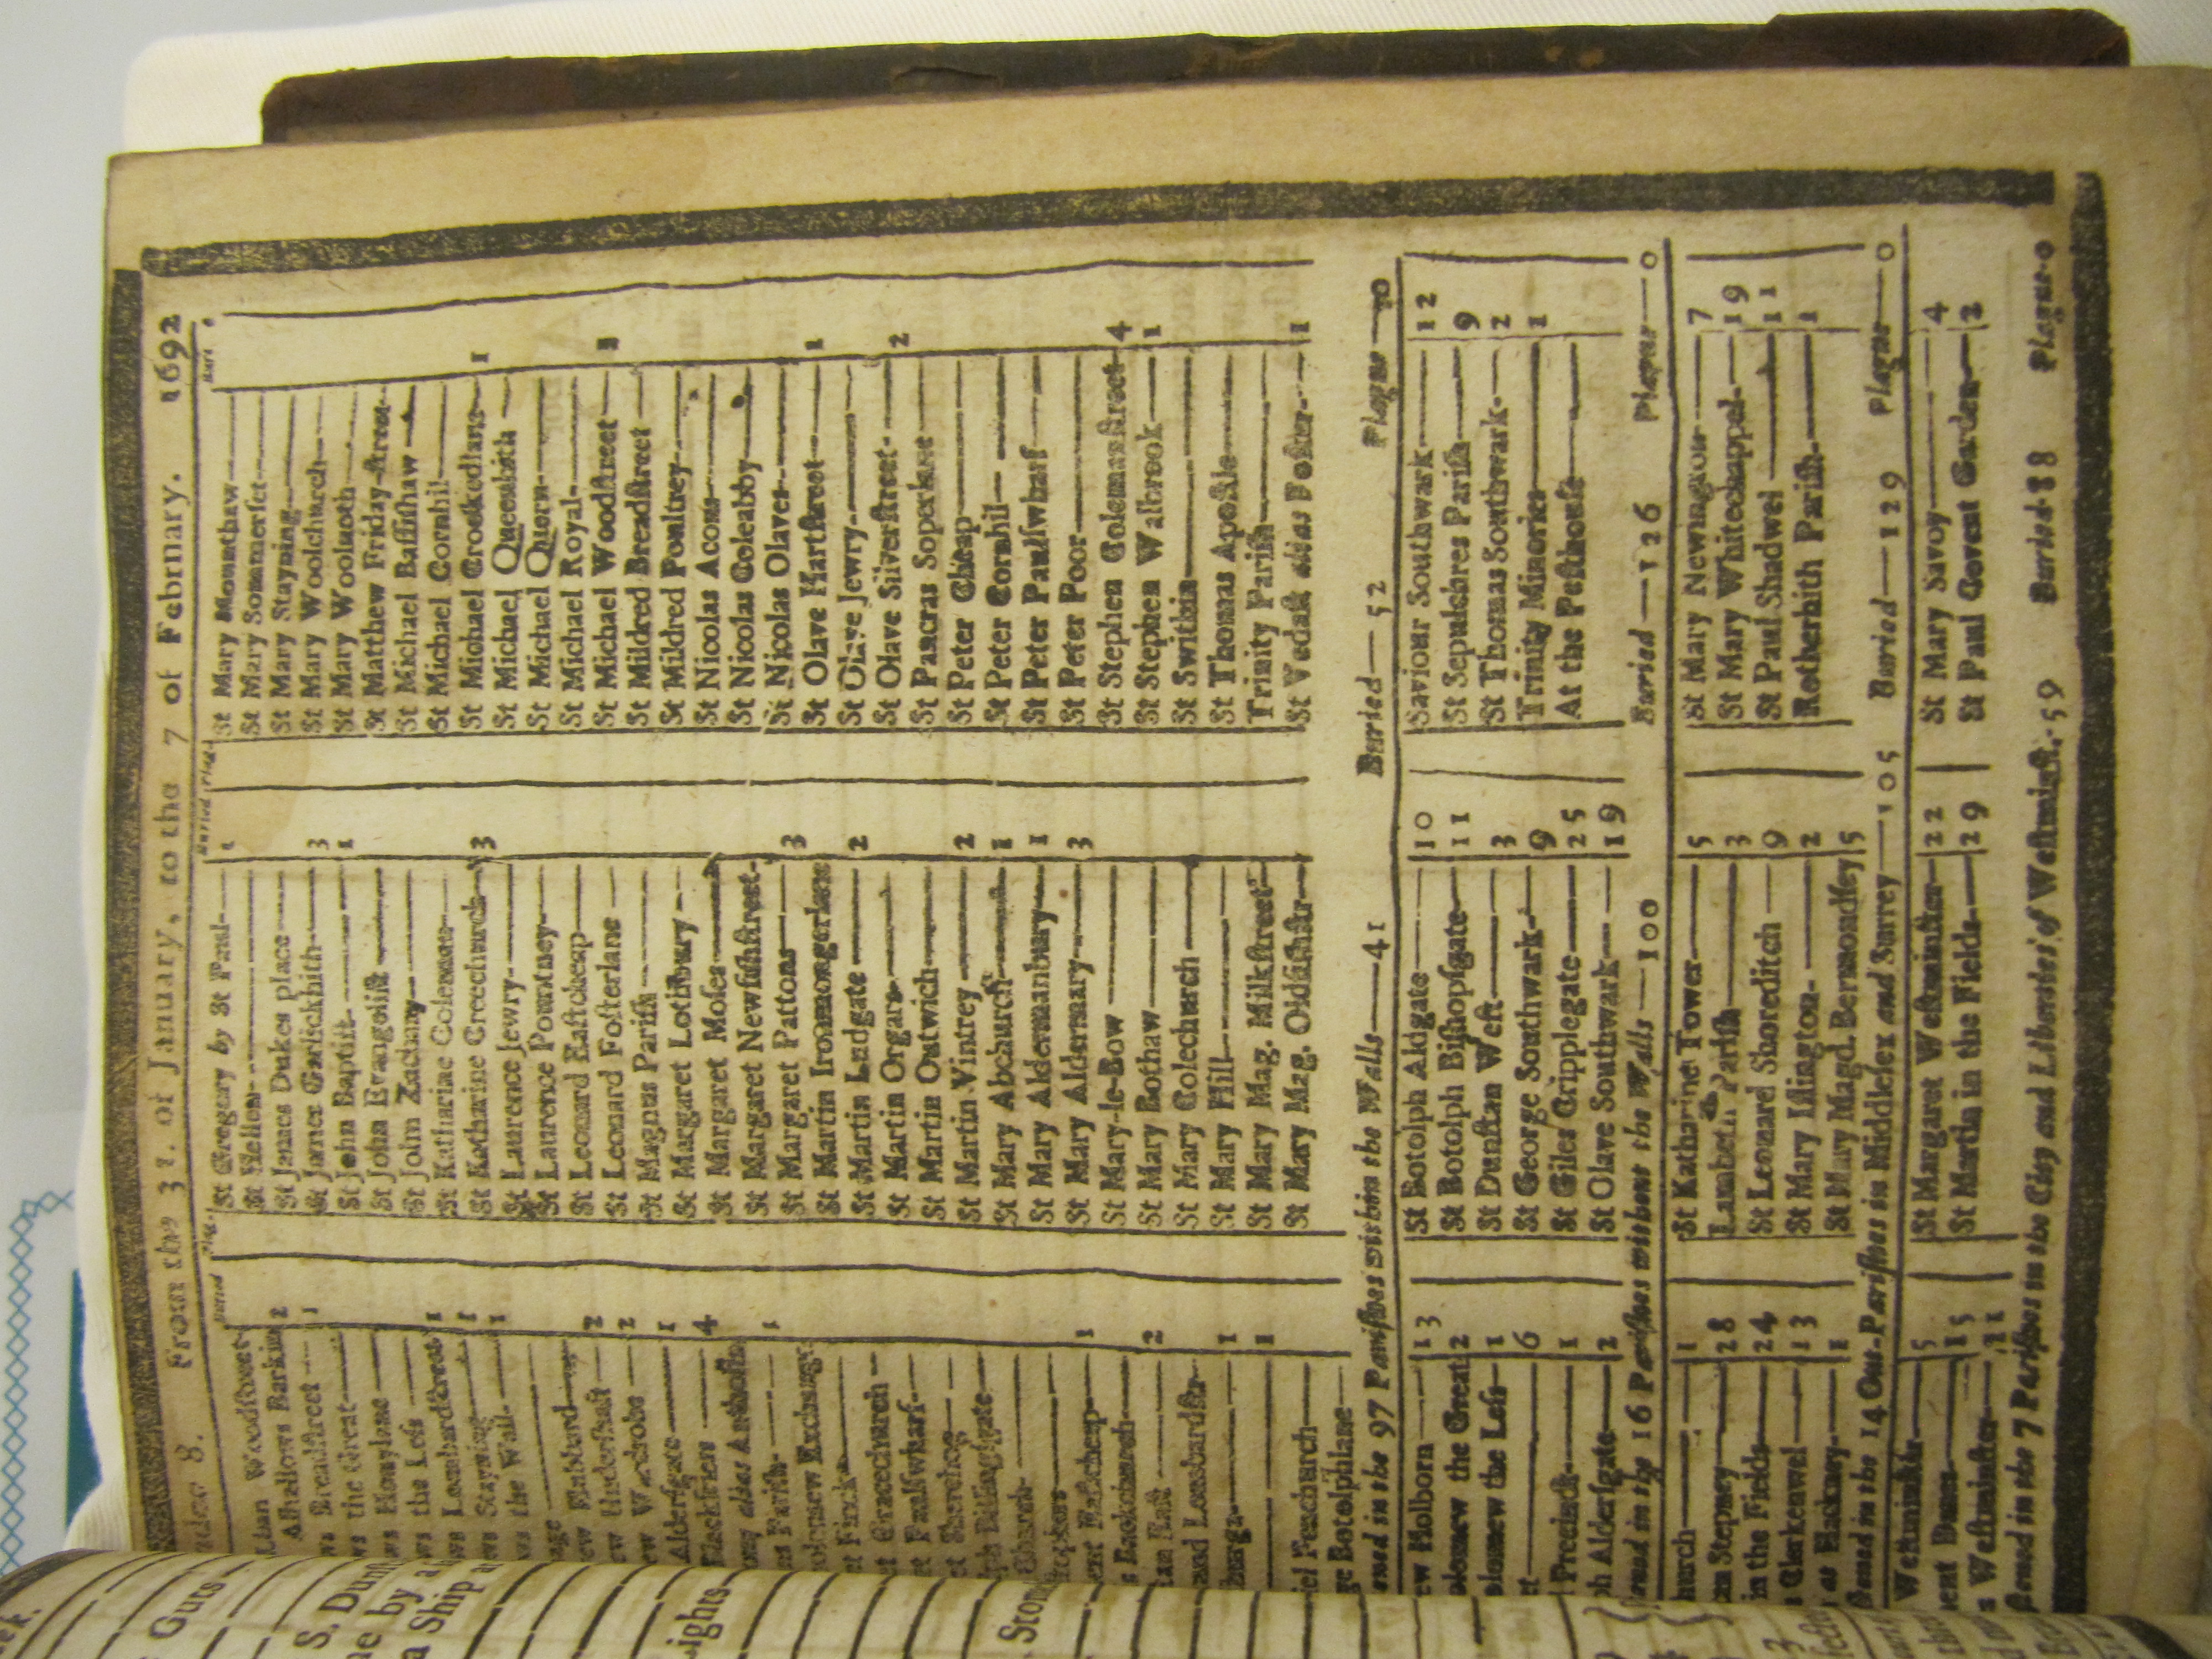 8. From the 31. of January, to the 7 of February. 1692
Buried Plag.
Woodstreet
Alhallows Barkin 2
Breadstreet 1
the Great
Honylane
the Less 1
Lombardstreet 1
Stayning 1
the Wall
Hubbard 2
Undershaft 2
Wardrobe 1
Aldersgate 4
Blackfriers
alias Antholin 1
Parish
Exchange
Finck
Gracechurch
Paulswharf
Sherehog
Billingsgate
Church
Eastcheap 1
Backchurch
East 2
and Lombardstr
1
1
Fenchurch
Botolphlane
Buried Plag.
St Gregory by St Paul 1
St Hellen
St James Dukes place
St James Garlickhith 3
St John Baptist 1
St John Evangelist
St John Zachary
St Katharine Coleman
St Katharine Creechurch 3
St Laurence Jewry
St Laurence Pountney
St Leonard Eastcheap
St Leonard Fosterlane
St Magnus Parish
St Margaret Lothbury
St Margaret Moses
St Margaret Newfishstreet
St Margaret Pattons 3
St Martin Ironmongerlane
St Martin Ludgate 2
St Martin Orgars
St Martin Outwich
St Martin Vintrey 2
St Mary Abchurch 1
St Mary Aldermanbury 1
St Mary Aldermary 3
St Mary-le-Bow
St Mary Bothaw
St Mary Colechurch
St Mary Hill
St Mary Mag. Milkstreet
St Mary Mag. Oldfishstr
Buri
St Mary Mounthaw
St Mary Sommerset
St Mary Stayning
St Mary Woolchurch
St Mary Woolnoth
St Matthew Friday-street
St Michael Bassishaw
St Michael Cornhil
St Michael Crookedlane 1
St Michael Queenhith
St Michael Quern
St Michael Royal
St Michael Woodstreet 1
St Mildred Breadstreet
St Mildred Poultrey
St Nicolas Acons
St Nicolas Coleabby
St Nicolas Olaves
St Olave Hartstreet 1
St Olave Jewry
St Olave Silverstreet 2
St Pancras Soperlane
St Peter Cheap
St Peter Cornhil
St Peter Paulswharf
St Peter Poor
St Stephen Colemanstreet 4
St Stephen Walbrook 1
St Swithin
St Thomas Apostle
Trinity Parish
St Vedast alias Foster 1
in the 97 Parishes within the Walls 41 Buried 52 Plague 0
Holborn 13
the Great 2
the Less 1
6
Precinct 1
Aldersgate 2
St Botolph Aldgate 10
St Botolph Bishopsgate 11
St Dunstan West 3
St George Southwark 9
St Giles Cripplegate 25
St Olave Southwark 19
Saviour Southwark 12
St Sepulchres Parish 9
St Thomas Southwark 2
Trinity Minories 1
At the Pesthouse
in the 16 Parishes without the Walls 100 Buried 126 Plague 0
1
Stepney 28
in the Fields 24
Clerkenwel 13
at Hackney 1
St Katharine Tower 5
Lambeth Parish 3
St Leonard Shoreditch 9
St Mary Islington 2
St Mary Magd. Bermondsey 5
St Mary Newington 7
St Mary Whitechappel 19
St Paul Shadwel 11
Rotherhith Parish 1
in the 14 Out-Parishes in Middlesex and Surrey 105 Buried 129 Plague 0
Westminster 5
Danes 15
Westminster 11
St Margaret Westminster 22
St Martin in the Fields 29
St Mary Savoy 4
St Paul Covent Garden 2
in the 7 Parishes in the City and Liberties of Westminst. 59 Buried 88 Plague 0
Guts
S. Dun
by a
a Ship
Ston